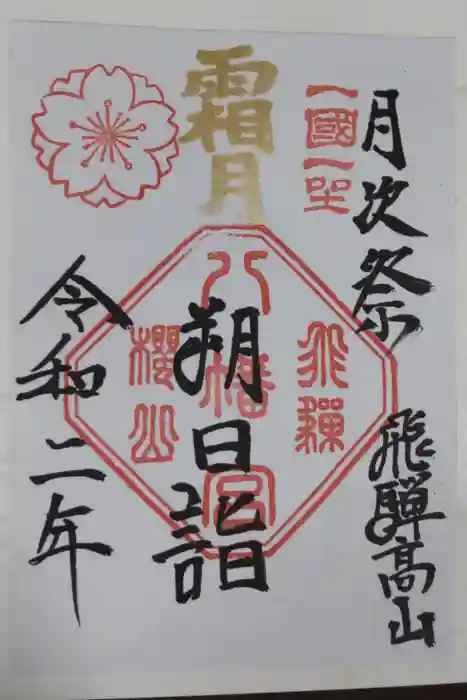 月次祭
飛騨高山
一國一社
霜月
朔日詣
飛騨
八幡宮
櫻山
令和二年